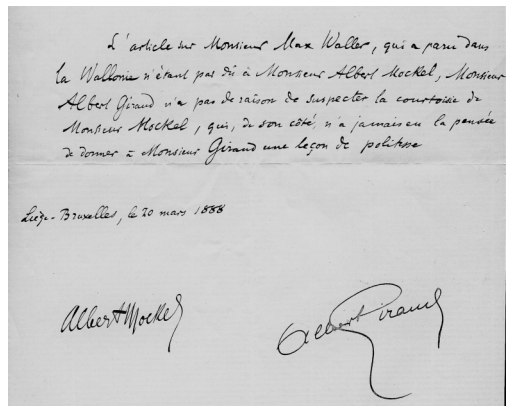 L'article sur Monsieur Max Waller, qui a paru dans
La Wallonie n'étant pas dû à Monsieur Albert Mockel, Monsieur
Albert Giraud n'a pas de raison de suspecter la courtoisie de
Monsieur Mockel, qui, de son côté, n'a jamais eu la pensée
de donner à Monsieur Giraud une leçon de politesse
Liége-Bruxelles, le 20 mars 1888
Albert Mockel
Albert Giraud